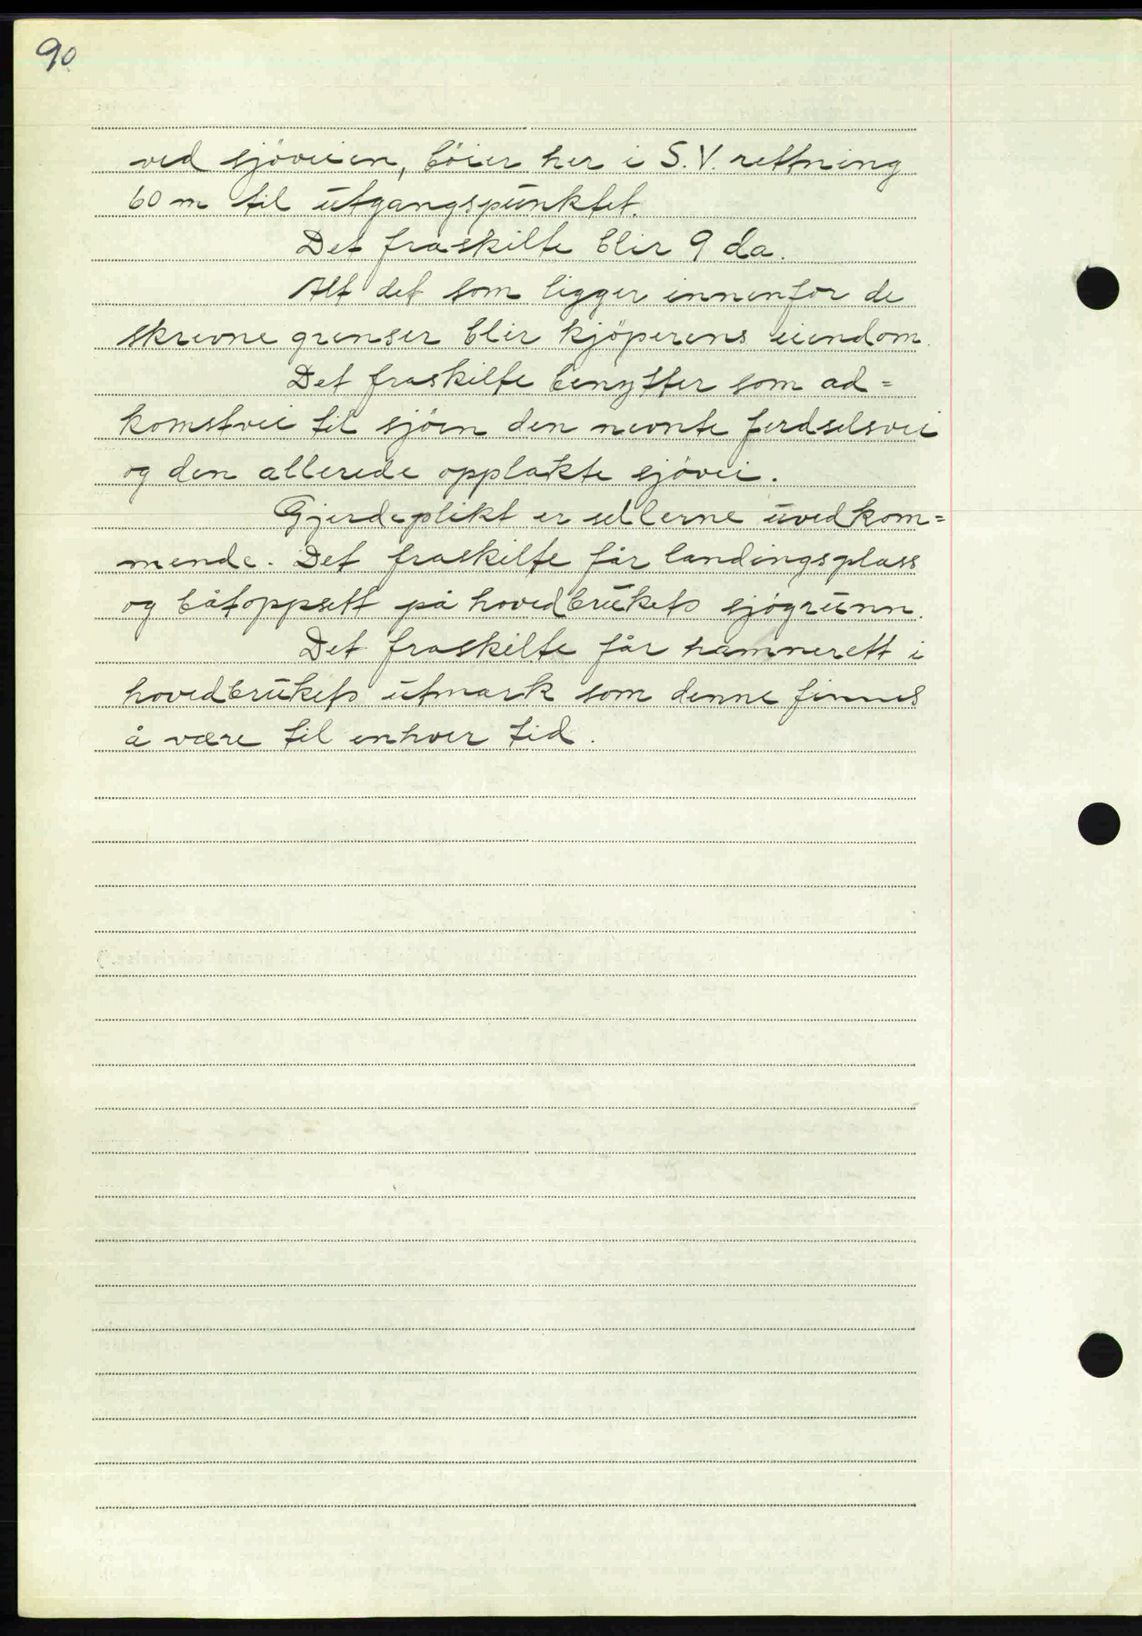 90
ved sjöveien, böier her i S.V. rettning
60 m til utgangspunktet.
Det fraskilte blir 9 da.
Alt det som ligger innenfor de
skrevne grenser blir kjöperens eiendom.
Det fraskilte benytter som ad=
komstvei til sjöen den nevnte ferdselsvei
og den allerede opplakte sjövei.
Gjerdeplikt er sellerne uvedkom=
mende. Det fraskilte får landingsplass
og båtoppsett på hovedbrukets sjögrunn.
Det fraskilte får hamnerett i
hovedbrukets utmark som denne finnes
å være til enhver tid.